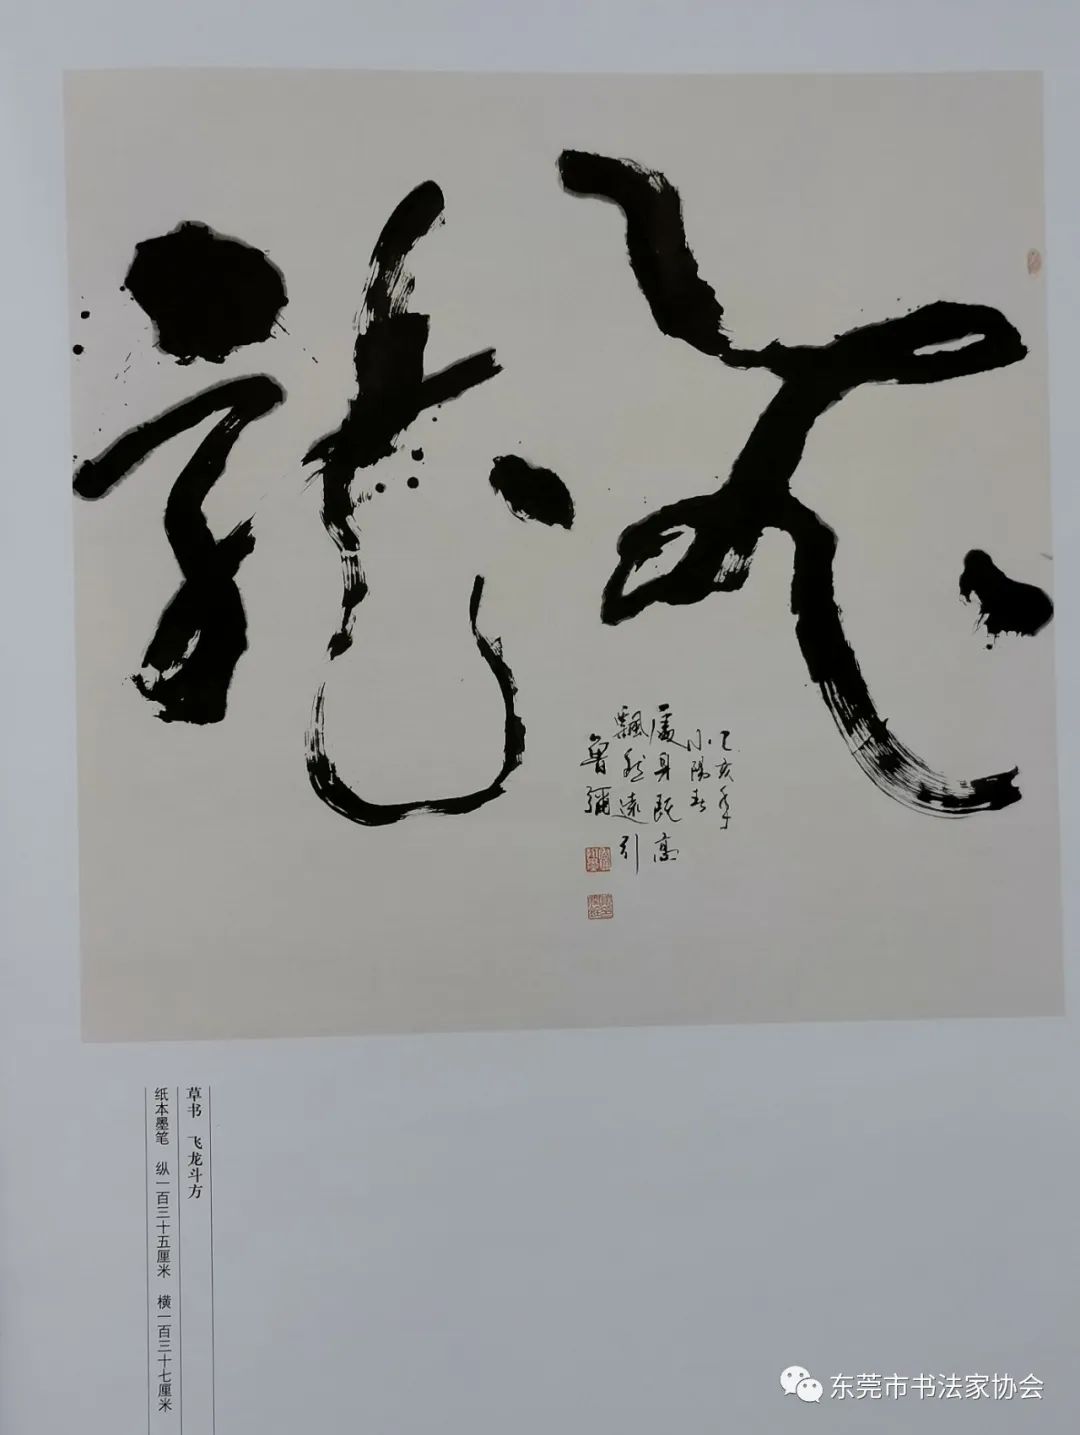 飛龍
乙亥年
小陽春
處身既高
飄然遠引
魯彌
草书 飞龙斗方
纸本墨笔 纵一百三十五厘米 横一百三十七厘米
东莞市书法家协会